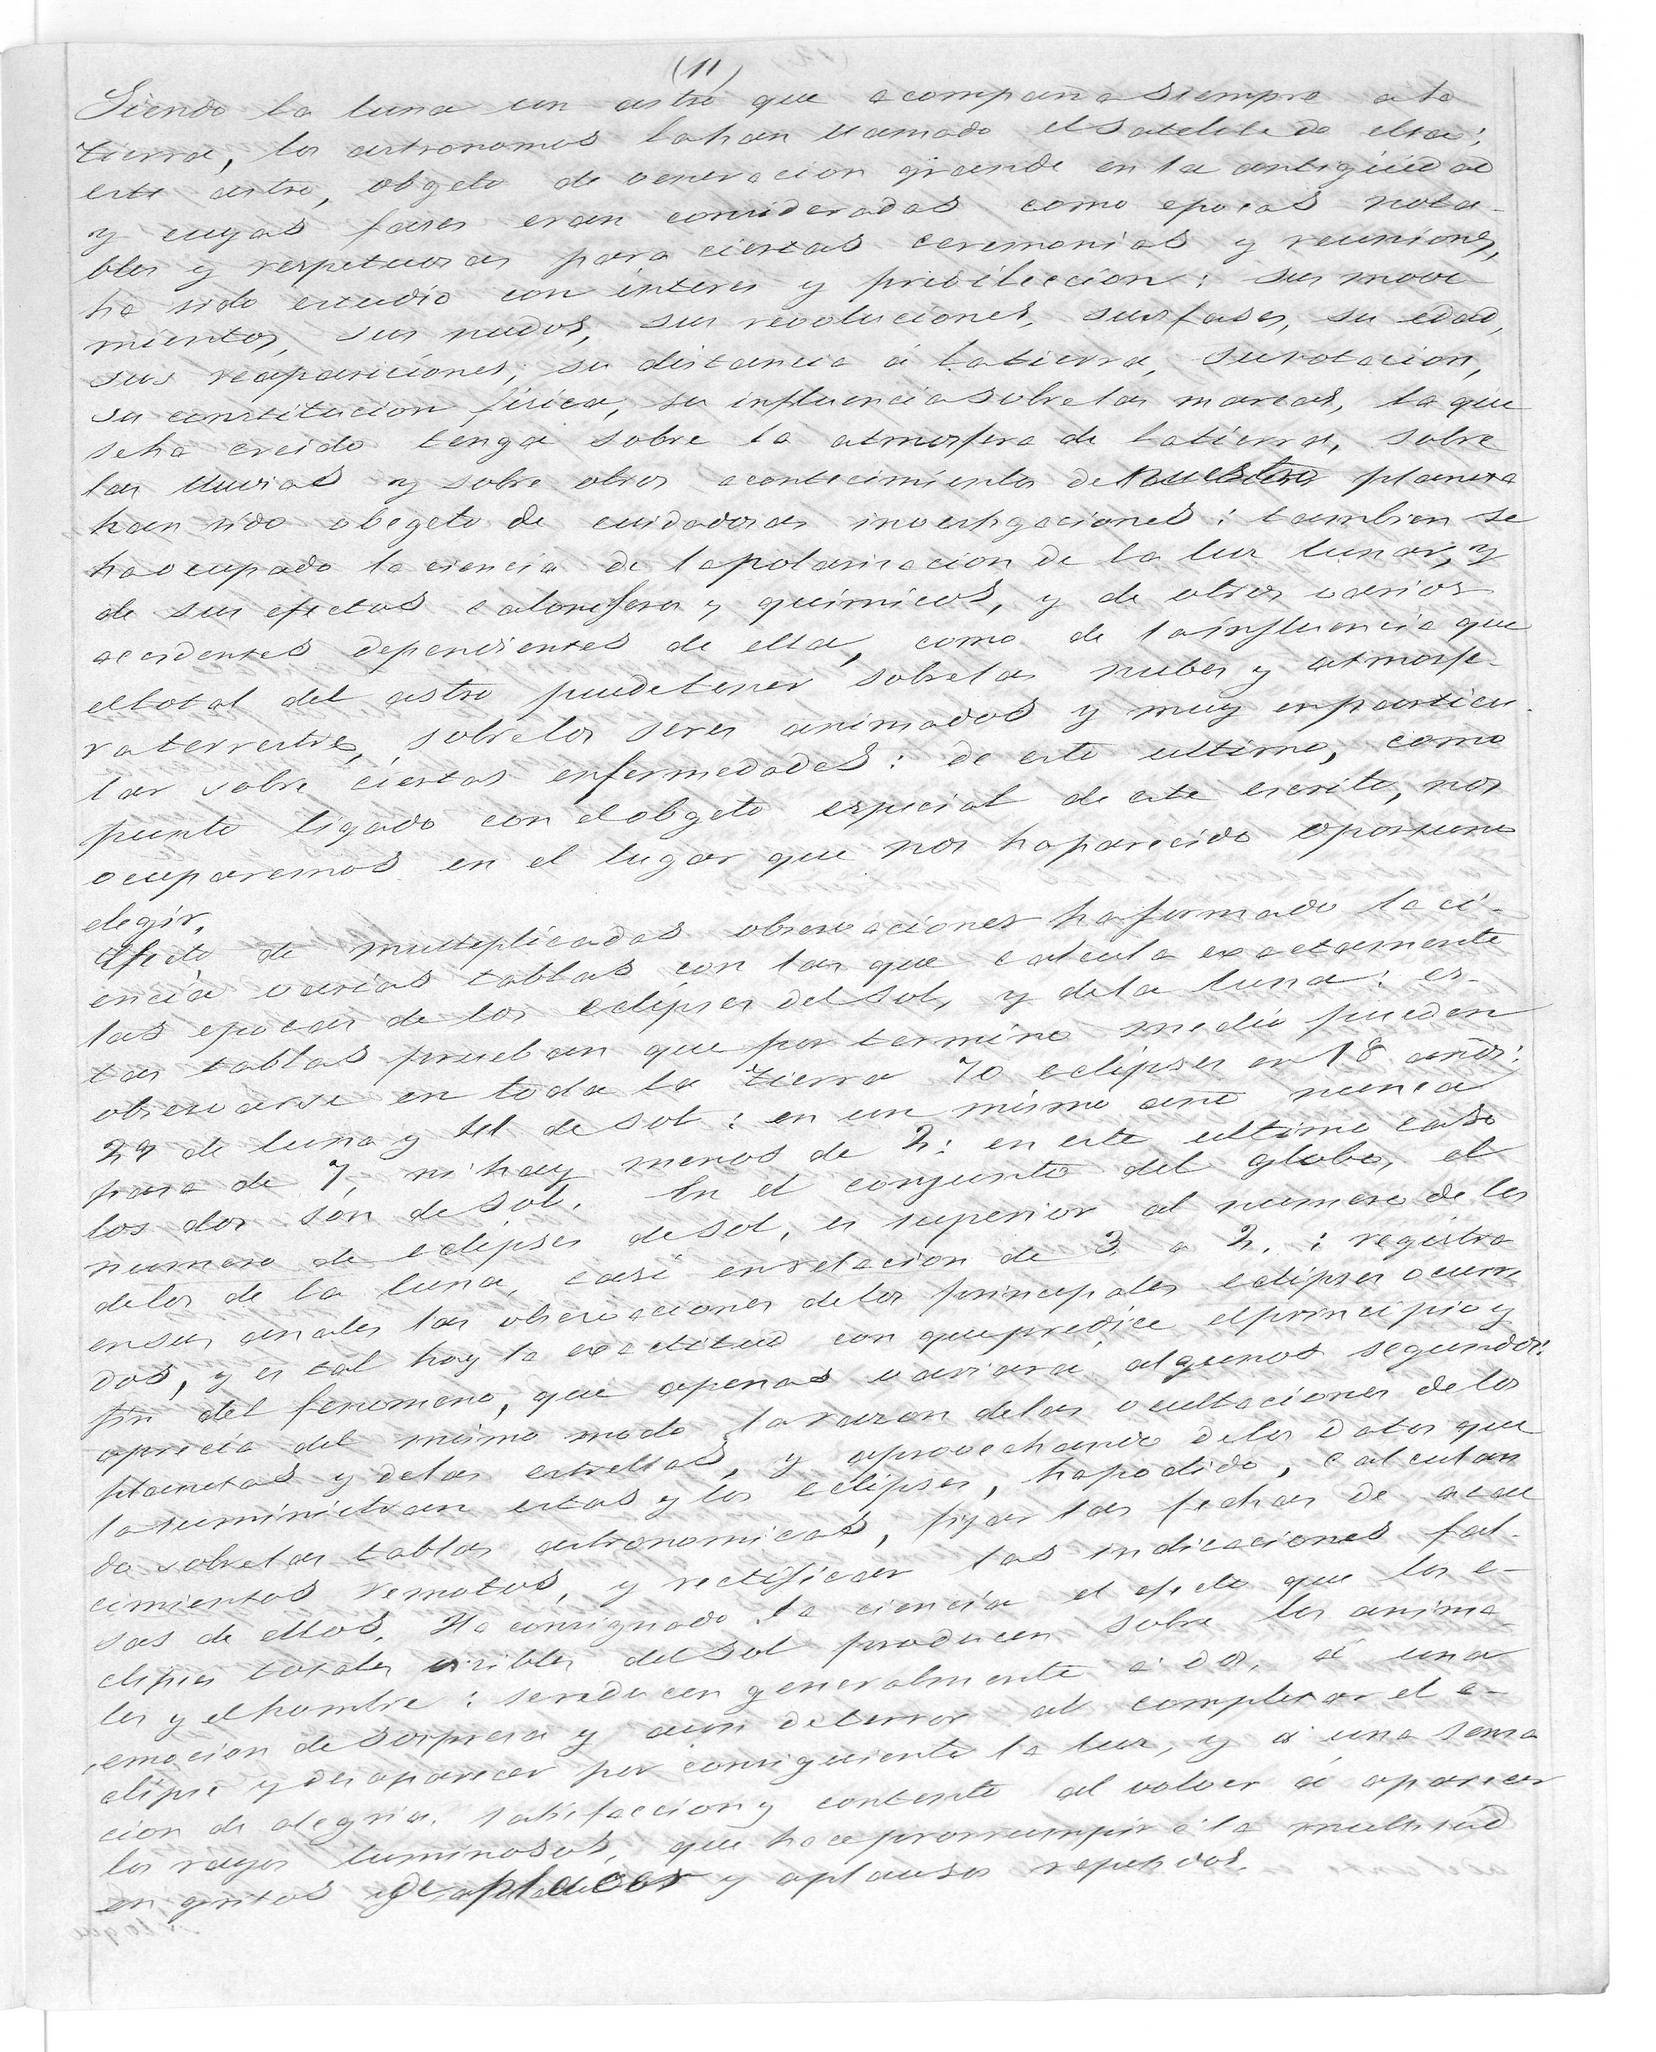 (11)
Siendo la luna un astro que acompaña siempre a la
tierra, los astronomos la han llamado el satelite de ella:
este astro, obgeto de veneracion grande en la antigüedad
y cuyas fases eran consideradas como epocas nota-
bles y respetuosas para ciertas ceremonias y reuniones,
ha sido estudio con interes y predileccion: sus movi
mientos, sus nudos, sus revoluciones, sus fases, su edad,
sus reapariciones, su distancia á la tierra, su rotacion,
su constitucion fisica, su influencia sobre las mareas, la que
se ha creido tenga sobre la atmosfera de la tierra, sobre
las lluvias y sobre otros acontecimientos de nuestro planeta
han sido obegeto de cuidadosas investigaciones: tambien se
ha ocupado la ciencia de la polarizacion de la luz lunar, y
de sus efectos caloriferos y quimicos, y de otros varios
accidentes dependientes de ella, como de la influencia que
el total del astro puede tener sobre las nubes y atmosfe-
ra terrestres, sobre los seres animados y muy en particu-
lar sobre ciertas enfermedades: de este ultimo, como
punto ligado con el obgeto especial de este escrito, nos
ocuparemos en el lugar que nos ha parecido oportuno
elegir.
Efecto de multiplicadas observaciones ha formado la ci-
encia varias tablas con las que calcula exactamente
las epocas de los eclipses del sol, y de la luna: es-
tas tablas prueban que por termino medio pueden
observarse en toda la tierra 70 eclipses en 18 años:
29 de luna y 41 de sol: en un mismo año nunca
pasa de 7, ni hay menos de 2: en este ultimo caso
los dos son de sol. En el conjunto del globo, el
numero de eclipses de sol, es superior al numero de los
de los de la luna, casi en relacion de 3 a 2.: registra
en sus anales las observaciones de los principales eclipses ocurri
dos, y es tal hoy la exactitud con que predice el principio y
fin del fenomeno, que apenas variará algunos segundos:
aprecia del mismo modo la razon de las ocultaciones de los
planetas y de las estrellas, y aprovechando de los datos que
la suministran estas y los eclipses, ha podido, calculan
do sobre las tablas astronomicas, fijar las fechas de acae
cimientos remotos, y rectificar las indicaciones fal-
sas de ellos. Ha consignado la ciencia el efecto que los e-
clipses totales visibles del sol producen sobre los anima
les y el hombre: se reducen generalmente á dos, á una
emocion de sorpresa y aun de terror al completar el e-
clipse y desaparecer por consiguiente la luz, y á una sensa
cion de alegria, satisfaccion y contento al volver á aparecer
los rayos luminosos, que hace prorrumpir á la multitud
en gritos de placer y aplausos repetidos.